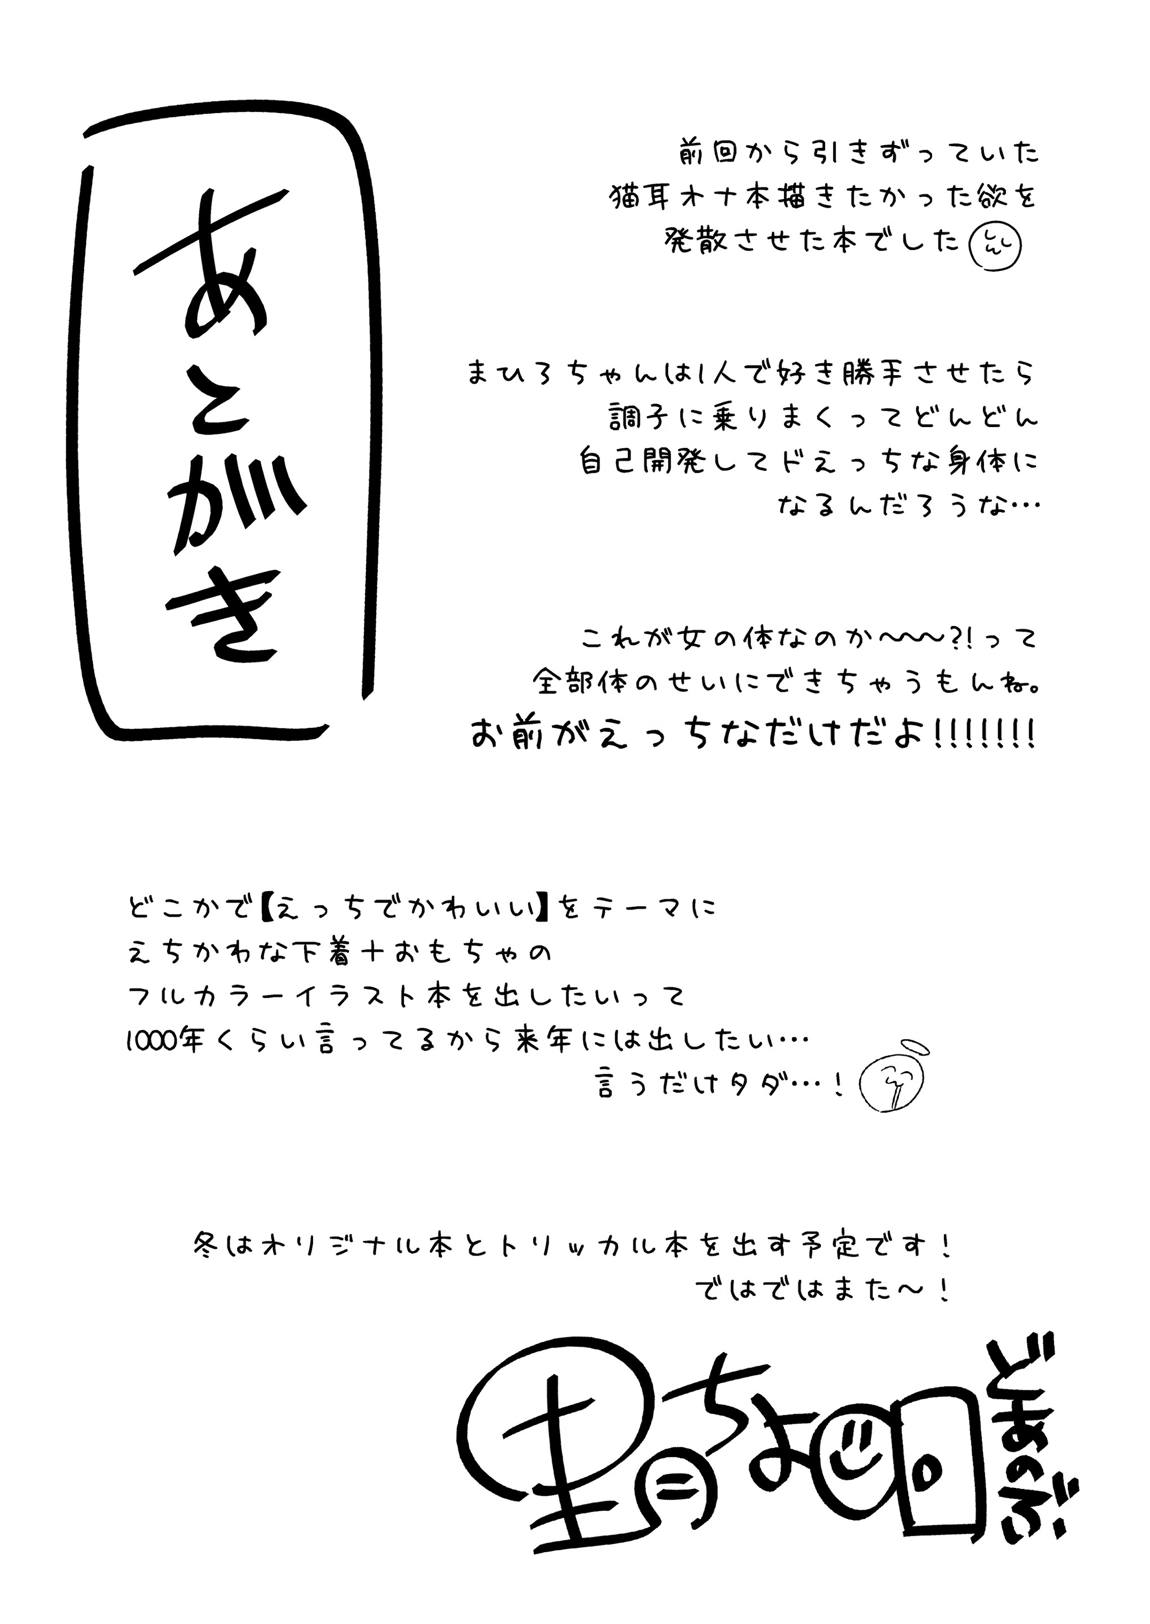 あとがき
前回から引きずっていた
猫耳オナ本描きたかった欲を
発散させた本でした
まひろちゃんは1人で好き勝手させたら
調子に乗りまくってどんどん
自己開発してドえっちな身体に
なるんだろうな…
これが女の体なのか～～～?!って
全部体のせいにできちゃうもんね。
お前がえっちなだけだよ!!!!!!!
どこかで【えっちでかわいい】をテーマに
えちかわな下着+おもちゃの
フルカラーイラスト本を出したいって
1000年くらい言ってるから来年には出したい…
言うだけタダ…！
冬はオリジナル本とトリッカル本を出す予定です！
ではではまた～！
どあのぶ